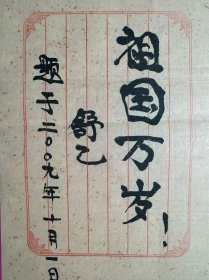 祖国万岁！
舒乙
题于二〇〇九年十月一日